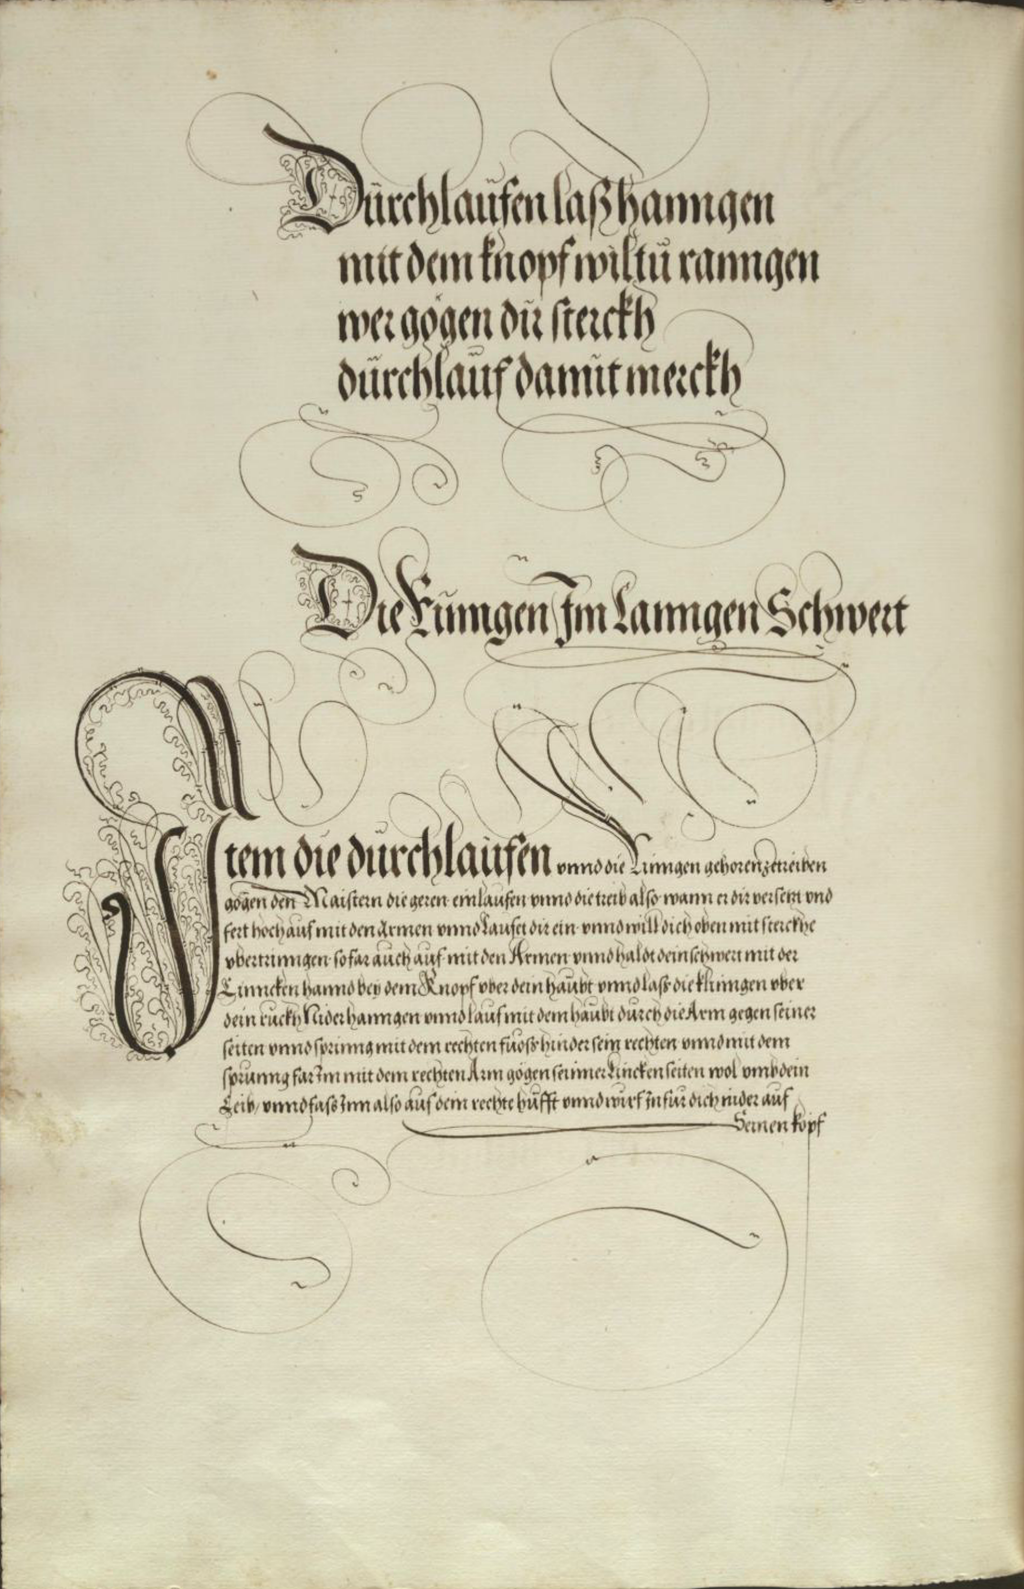 Dürchlaüfen laß hanngen
mit dem knopf wiltü ranngen
wer gögen dir sterckh
dürchlaüf damit merckh
Die Ringen Im Lanngen Schwert
Item die dürchlaüfen vnnd die Ringen gehoren zetreiben
gögen den Maistern die geren einlaufen vnnd die treib also wann er dir versetzt vnd
fert hoch auf mit den Armen vnnd Laufet dir ein vnnd will dich oben mit sterckhe
vberrinngen so far auch auf mit den Armen vnnd haldt dein schwert mit der
Linncken hannd bey dem Knopf vber dein haubt vnnd lass die klinngen vber
dein ruckh Nider hanngen vnnd lauf mit dem haubt durch die Arm gegen seiner
seiten vnnd sprinng mit dem rechten fuoss hinder sein rechten vnnd mit dem
sprunng far Im mit dem rechten Arm gögen seinner Lincken seiten wol vmb dein
Leib vnnd fass Inn also auf dein rechte hüfft vnnd würf In für dich nider auf
Seinen kopf